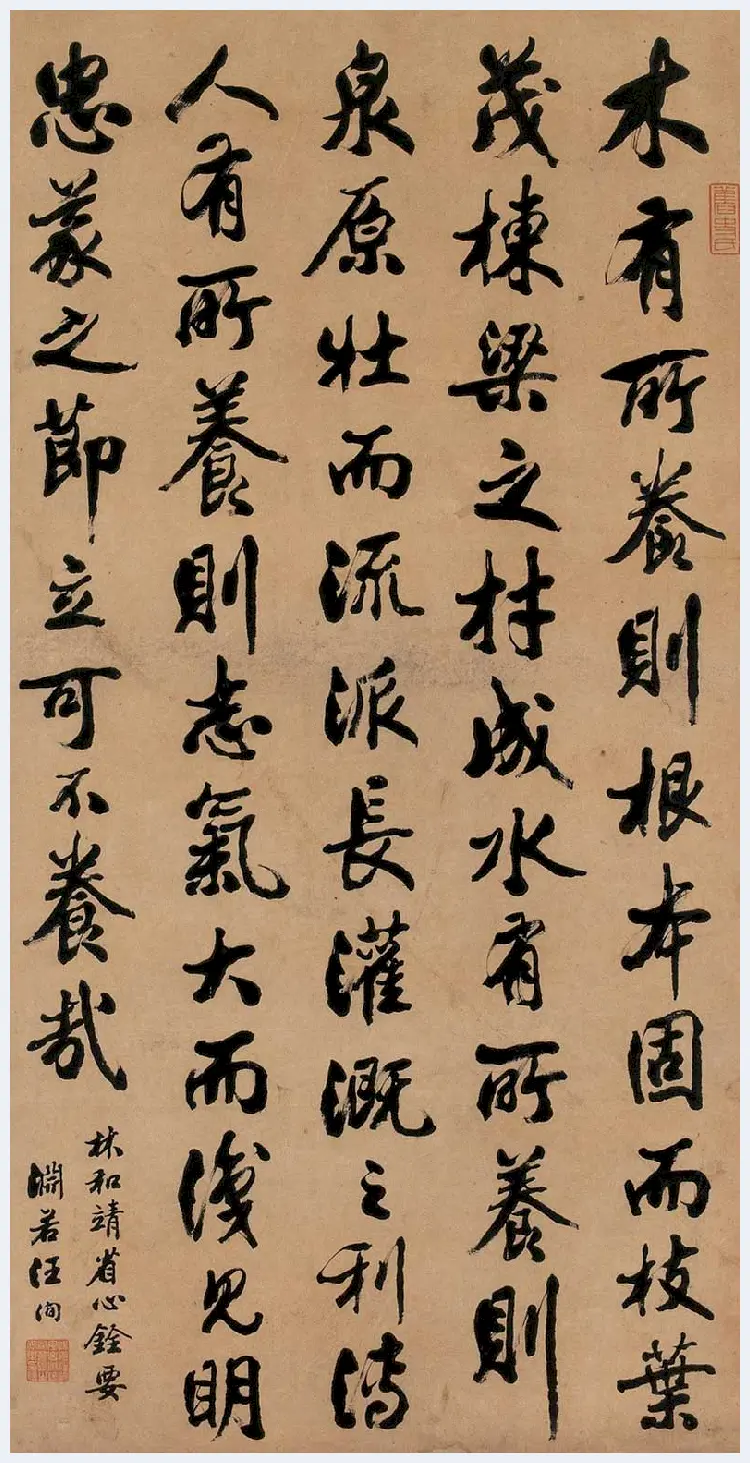 木有所養則根本固而枝葉
茂棟梁之材成水有所養則
泉原壯而流派長灌溉之利溥
人有所養則志氣大而識見明
忠義之節立可不養哉
林和靖省心銓要
淵若汪洵